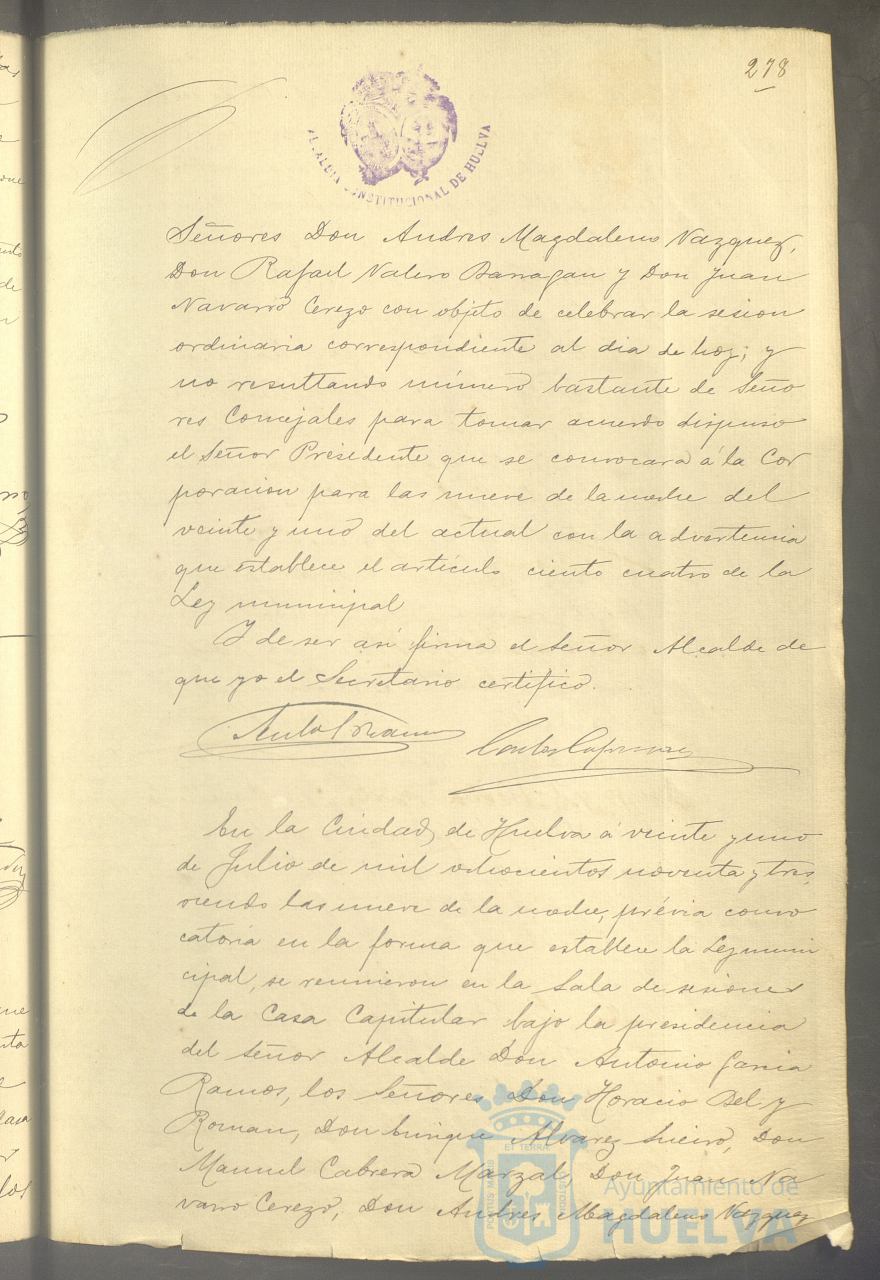 278
ALCALDIA CONSTITUCIONAL DE HUELVA
Señores Don Andres Magdaleno Vazquez,
Don Rafael Valero Barragan y Don Juan
Navarro Cerezo con objeto de celebrar la sesion
ordinaria correspondiente al dia de hoy; y
no resultando número bastante de Seño
res Concejales para tomar acuerdo dispuso
el Señor Presidente que se convocara á la Cor
poracion para las nueve de la noche del
veinte y uno del actual con la advertencia
que establece el artículo ciento cuatro de la
Ley municipal
Y de ser asi firma el Señor Alcalde de
que yo el Secretario certifico.
En la Ciudad de Huelva á veinte y uno
de Julio de mil ochocientos noventa y tres,
siendo las nueve de la noche, prévia convo
catoria en la forma que establece la Ley muni
cipal, se reunieron en la Sala de sesiones
de la Casa Capitular bajo la presidencia
del Señor Alcalde Don Antonio Garcia
Ramos, los Señores Don Horacio Bel y
Roman, Don Enrique Alvarez Sueiro, Don
Manuel Cabrera Marzal, Don Juan Na
varro Cerezo, Don Andres Magdaleno Vazquez
Ayuntamiento de
HUELVA